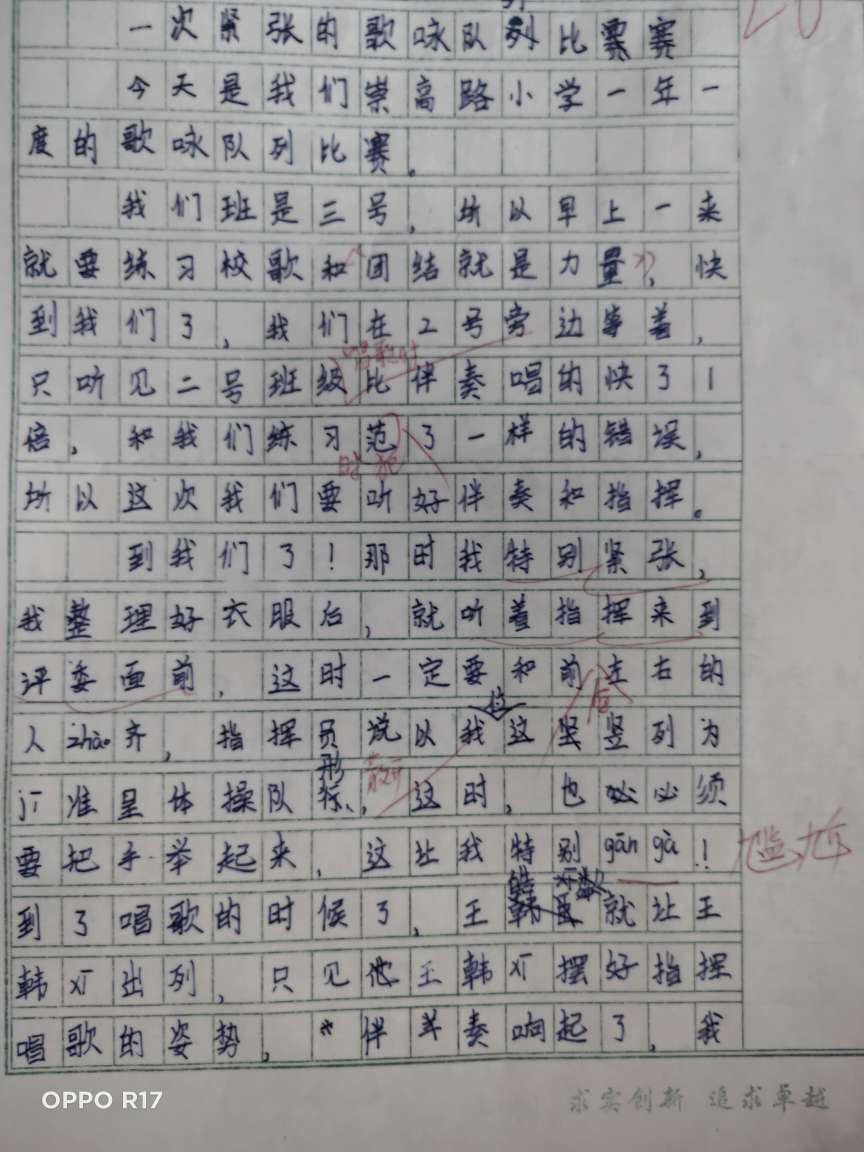 一次紧张的歌咏队列比赛
今天是我们崇高路小学一年一
度的歌咏队列比赛。
我们班是三号,所以早上一来
就要练习校歌和“团结就是力量”,快
到我们了,我们在2号旁边等着,
唱歌时
只听见二号班级比伴奏唱的快了1
倍,和我们练习范了一样的错误,
时犯
所以这次我们要听好伴奏和指挥。
到我们了!那时我特别紧张,
我整理好衣服后,就听着指挥来到
评委面前,这时一定要和前左右的
后
人zhào齐,指挥员说以我这竖列为
jī准呈体操队形散开,这时,也必须
要把手举起来,这让我特别gān gà!
尴尬
到了唱歌的时候了,王就让王
韩xī出列,只见王韩xī摆好指挥
唱歌的姿势,伴奏响起了,我
OPPO R17
求实创新 追求卓越